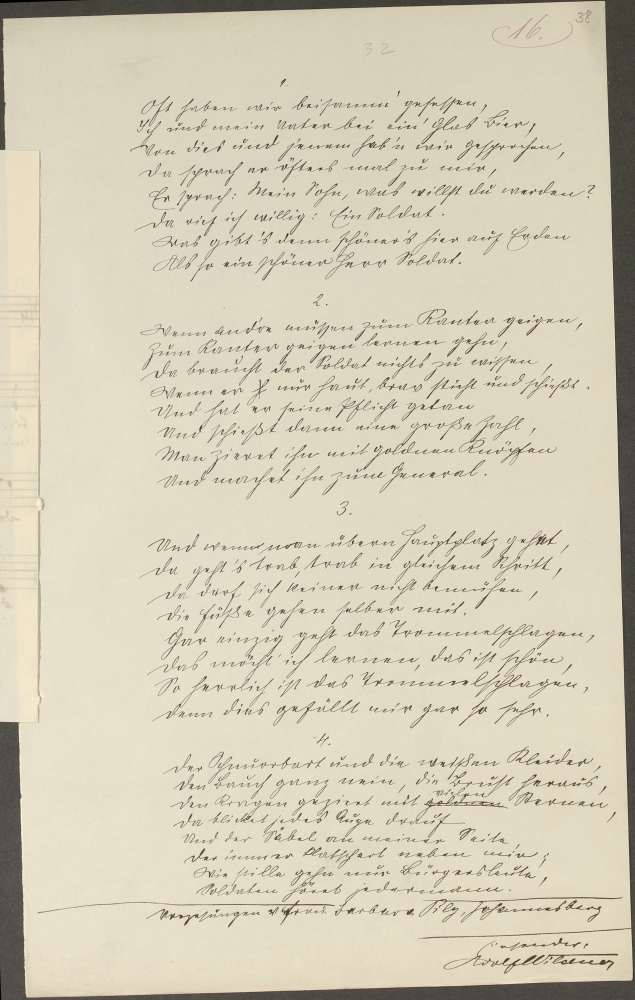 38
16.
32
Oft haben wir beisamm' gesessen,
Ich und mein Vater bei ein' Glas Bier,
Von dies und jenem hab'n wir gesprochen,
Da sprach er öfters mal zu mir,
Er sprach: Mein Sohn, was willst du werden?
Da rief ich willig: Ein Soldat.
Was gibt's denn schöner's hier auf Erden
Als so ein schöner Herr Soldat.
2.
Wenn andre müssen zum Kanter geigen,
Zum Kanter geigen lernen gehn,
Da braucht der Soldat nichts zu wissen,
Wenn er nur haut, brav sticht und schießt.
Und hat er seine Pflicht getan
Und schießt dann eine große Zahl,
Man zieret ihn mit goldnen Knöpfen
Und machet ihn zum General.
3.
Und wenn man übern Hauptplatz gehet,
Da geht's trab, trab in gleichem Schritt,
Da darf sich keiner nicht bemühen,
Die Füße gehen selber mit.
Gar einzig geht das Trommelschlagen,
Das möcht' ich lernen, das ist schön,
So herrlich ist das Trommelschlagen,
Denn dies gefällt mir gar so sehr.
4.
Der Schnurrbart und die weißen Kleider,
Den Bauch ganz nein, die Brust heraus,
Den Kragen geziert mit goldnen vielen Sternen,
Da blicket jedes Auge drauf
Und der Säbel an meiner Seite,
Der immer platschert neben mir;
Wie stille gehn nur Bürgersleute,
Soldaten höret jedermann.
Vorgesungen v. Frau Barbara Pilz, Johannesberg
Einsender:
Adolf Wildner